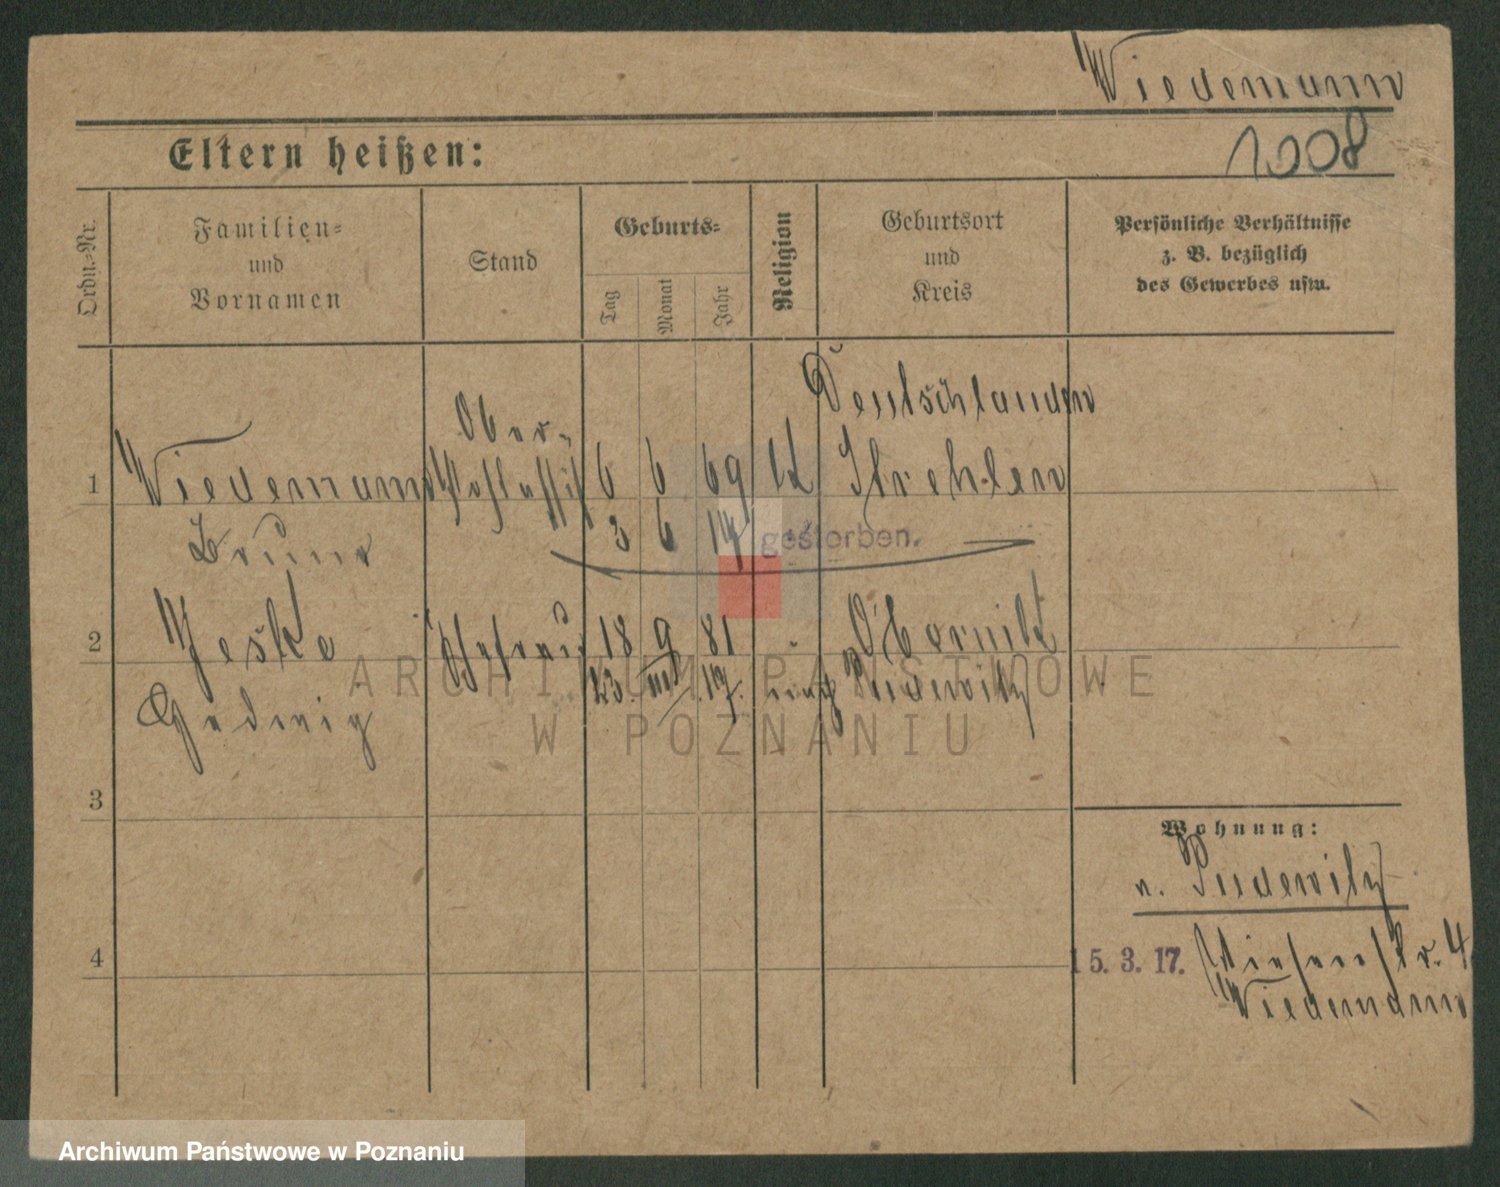 Wiedemann
1008
Eltern heißen:
Ordn.-Nr.
Familien-
und
Vornamen
Stand
Geburts-
Tag
Monat
Jahr
Religion
Geburtsort
und
Kreis
Persönliche Verhältnisse
z. B. bezüglich
des Gewerbes usw.
Deutschland
Ober-
1 Wiedemann 6 6 69 Strehlen
Bruno 3 6 14 gestorben.
2 Jeske 18 9 81 Obornik
23. III. 17. nach Pudewitz
Hedwig
ARCHIWUM PAŃSTWOWE
W POZNANIU
3
Wohnung:
n. Pudewitz
4
15. 3. 17. Wiesenstr. 4
Wiedemann
Archiwum Państwowe w Poznaniu